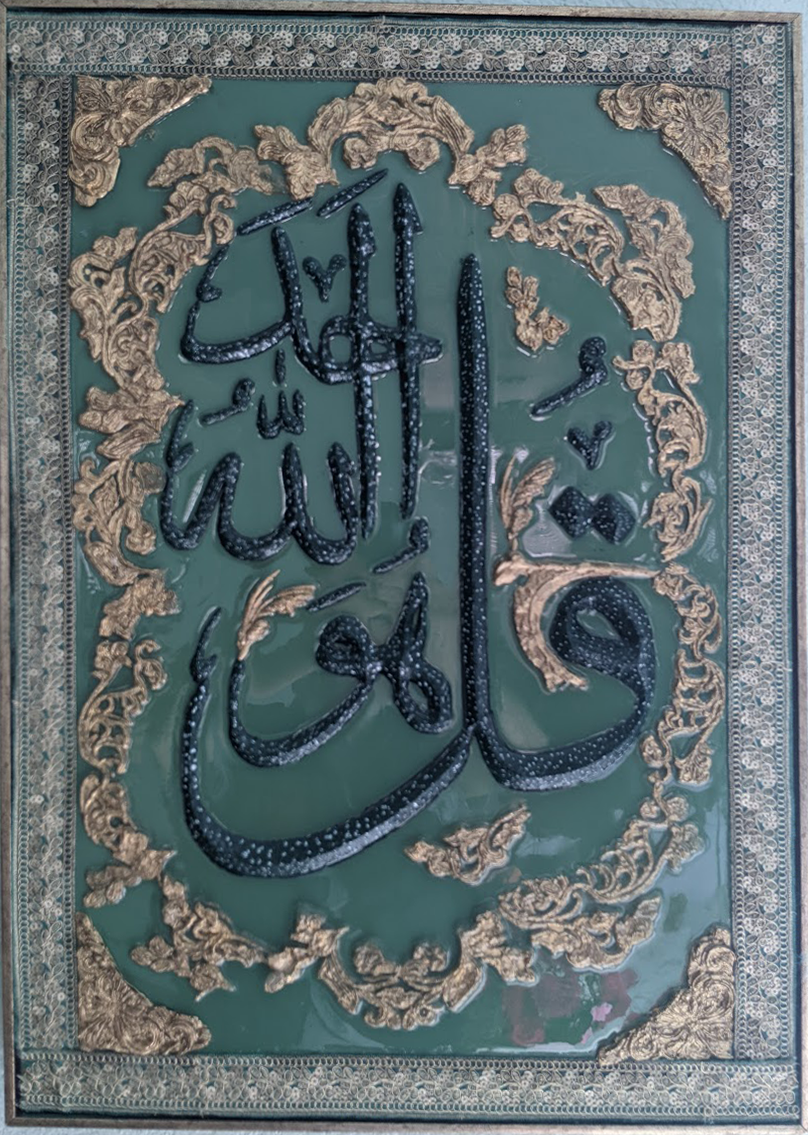 قُل هُوَ اللّٰهُ اَحَد